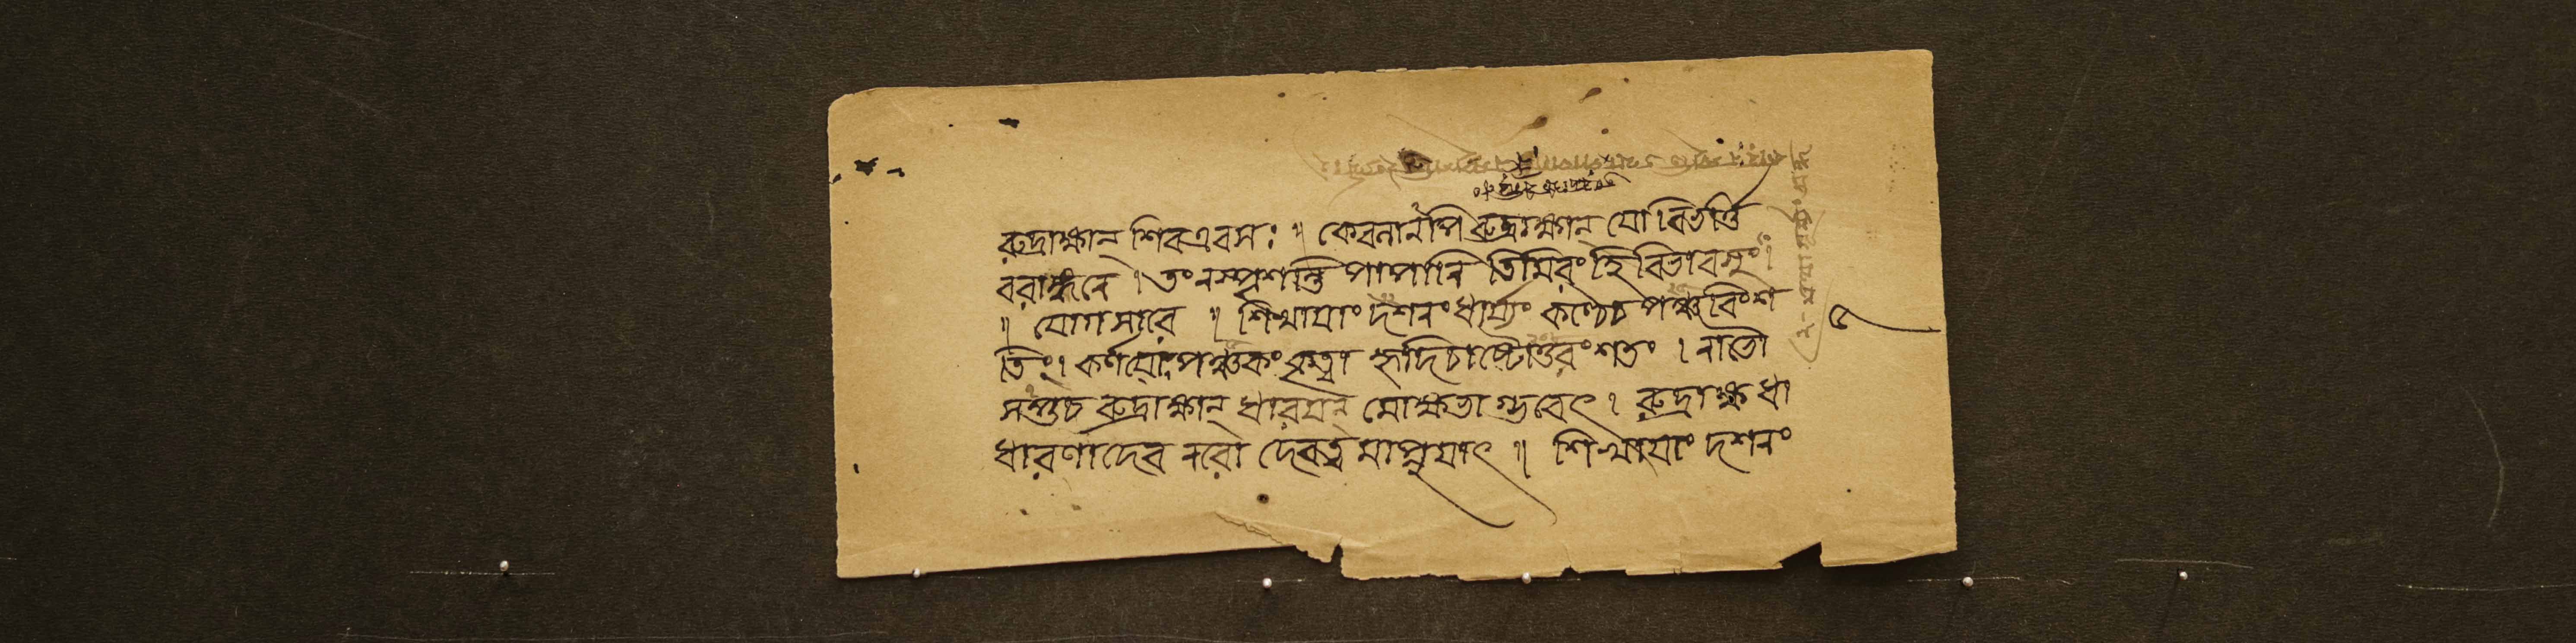 রুদ্রাক্ষান্ শিবএবসঃ ॥ কেবলানপি রুদ্রাক্ষান্ যো বিভর্ত্তি
বরাননে । তং ন স্পৃশন্তি পাপানি তিমিরং হি বিভাবসুং ।
॥ যোগসারে ॥ শিখায়াং দশনং ধার্য্যং কণ্ঠেচ পঞ্চবিংশ
তিং । কর্ণয়োঃ পঞ্চকং কৃত্বা হৃদিচাষ্টোত্তরং শতং । নাভৌ
সপ্তচ রুদ্রাক্ষান্ ধারয়ন্ মোক্ষভাগ্ভবেৎ । রুদ্রাক্ষ ধা
ধারণাদেব নরো দেবত্ব মাপ্নুয়াৎ ॥ শিখায়াং দশনং